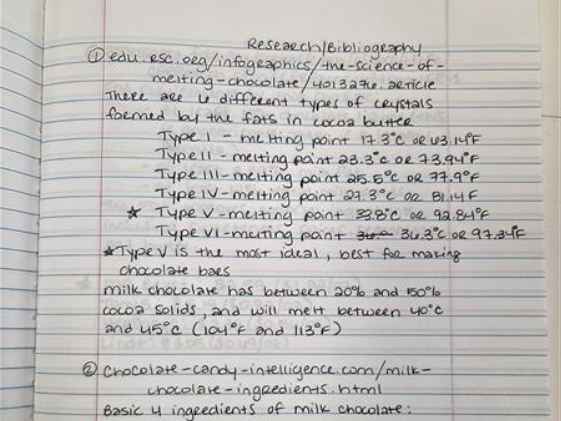 Research/Bibliography
① edu.rsc.org/infographics/the-science-of-
melting-chocolate/4013276.article
There are 6 different types of crystals
formed by the fats in cocoa butter
Type I - melting point 17.3°C or 63.14°F
Type II - melting point 23.3°C or 73.94°F
Type III - melting point 25.5°C or 77.9°F
Type IV - melting point 27.3°C or 81.14F
★ Type V - melting point 33.8°C or 92.84°F
Type VI - melting point 36.3°C or 97.34°F
★Type V is the most ideal, best for making
chocolate bars
milk chocolate has between 20% and 50%
cocoa solids, and will melt between 40°C
and 45°C (104°F and 113°F)
② Chocolate-candy-intelligence.com/milk-
chocolate-ingredients.html
Basic 4 ingredients of milk chocolate: